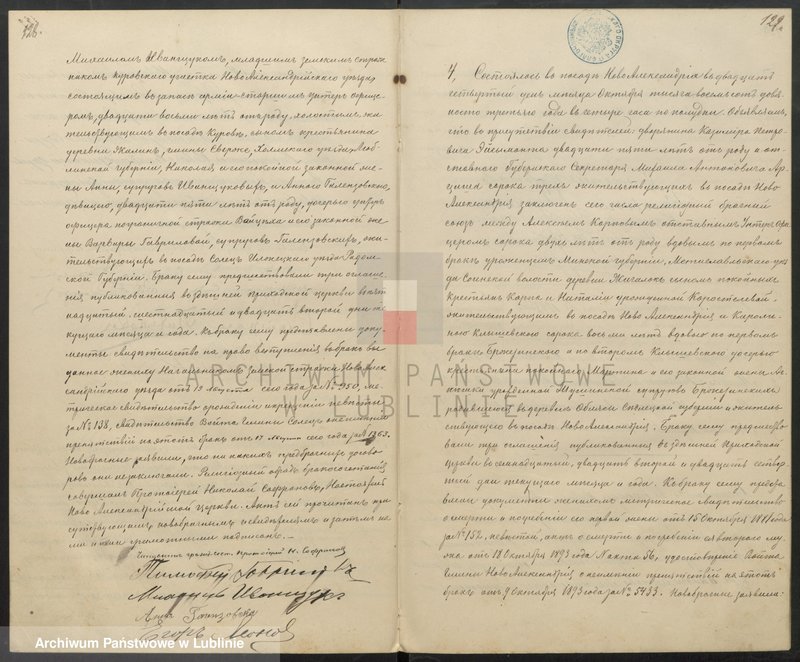 128.
Михаиломъ Иванщукомъ, младшимъ земскимъ страж
никомъ Куровскаго участка НовоАлександрійскаго уѣзда
состоящимъ въ запасѣ арміи старшимъ унтеръ офице
ромъ, двадцати восьми лѣтъ отъ роду, холостымъ, жи
тельствующимъ въ посадѣ Куровѣ, сыномъ крестьянина
деревни Жалинъ, гмины Свержъ, Холмскаго уѣзда Люб
линской губерніи, Николая и его покойной законной же
ны Анны, супруговъ Иванщуковыхъ, и Анною Галензовскою,
дѣвицею, двадцати пяти лѣтъ отъ роду, дочерью унтеръ
офицера пограничной стражи Войцѣха и его законной же
ны Варвары Гавриловой, супруговъ Галензовскихъ, жи
тельствующею въ посадѣ Солецъ Илжецкаго уѣзда Радом
ской Губерніи. Браку сему предшествовали три оглаше
нія публикованныя въ здѣшней приходской церкви въ пят
надцатый, шестнадцатый и двадцать второй дни те
кущаго мѣсяца и года. Къ браку сему предъявлены доку
менты: свидѣтельство на право вступленія въ бракъ вы
данное оному Начальникомъ Земской стражи НовоАлек
сандрійскаго уѣзда отъ 13 Августа сего года за № 950, ме
трическое свидѣтельство о рожденіи и крещеніи невѣсты
за № 138, свидѣтельство Войта Гмины Солецъ о неимѣніи
препятствій на этотъ бракъ отъ 17 Августа сего года за № 1363.
Новобрачные заявили, что ни какихъ предбрачныхъ догово
ровъ они не заключали. Религіозный обрядъ бракосочетанія
совершилъ Протоіерей Николай Сафроновъ, Настоятель
Ново Александрійской Церкви. Актъ сей прочитанъ при
сутствующимъ, новобрачнымъ и свидѣтелямъ и затѣмъ на
ми и ими грамотными подписанъ. —
Протоіерей Н. Сафроновъ
Тимофей
Михаилъ Иванщукъ
Анна Галензовска
Егоръ Леонов
129.
4, Состоялось въ посадѣ НовоАлександріи въ двадцать
четвертый день мѣсяца Октября тысяча восемьсотъ девя
носто третьяго года въ четыре часа по полудни. Объявляемъ,
что въ присутствіи свидѣтелей: дворянина Казиміра Петро
вича Эйсмонта двадцати пяти лѣтъ отъ роду и от
ставнаго Губернскаго Секретаря Михаила Антоновича Ар
цыша сорока трехъ жительствующихъ въ посадѣ Ново
Александріи заключенъ сего числа религіозный брачный
союзъ между Алексѣемъ Карповымъ отставнымъ Унтеръ Офи
церомъ сорока двухъ лѣтъ отъ роду вдовымъ по первомъ
бракѣ уроженцемъ Минской губерніи, Мстиславльскаго уѣз
да Соинской волости деревни Жигалокъ сыномъ покойныхъ
Крестьянъ Карпа и Наталіи урожденной Коростелевой,
жительствующимъ въ посадѣ Ново Александріи и Кароли
ною Клышевскою сорока восьми лѣтъ вдовою по первомъ
бракѣ и по второмъ Клышевскою дочерью
крестьянина покойнаго Мартина и его законной жены Ан
родившеюся въ деревнѣ Облясы Сѣдлецкой губерніи и житель
ствующею въ посадѣ Ново Александріи. Браку сему предшество
вали три оглашенія публикованныя въ здѣшней Приходской
Церкви въ семнадцатый, двадцать второй и двадцать четвер
тый дни текущаго мѣсяца и года. Къ браку сему предъя
влены документы женихомъ метрическое свидѣтельство
о смерти и погребеніи его первой жены отъ 15 Октября
за № 152, невѣстой, актъ о смерти и погребеніи ея второго му
жа отъ 18 Октября 1893 года № акта 56, удостовѣреніе Войта
Гмины Ново Александрія о неимѣніи препятствій на этотъ
бракъ отъ 9 Октября 1893 года за № 5433. Новобрачные заявили:
ARCHIWUM PAŃSTWOWE
W LUBLINIE
Archiwum Państwowe w Lublinie